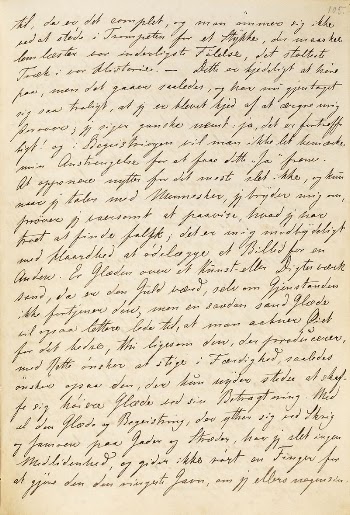 195.
til, da er det complet, og man ømmer sig ikke
ved at støde i Trompeten for et Stykke, der maaskee
lemlæster vor underligste Følelse, det stolteste
Træk i vor Historie. — Dette er kjedeligt at høre
paa, men det gaaer saaledes, og har nu gjentaget
sig saa traligt, at jeg er blevet kjed af at ærgre mig
derover; jeg siger ganske nemt: ja, det er fortræff-
ligt! og i Begeistringen vil man ikke let bemærke
min Anstrengelse for at faae dette "Ja" frem.
At opponere nytter for det meste slet ikke, og kun
naar jeg taler med Mennesker, jeg bryder mig om,
prøver jeg eensomt at paavise, hvad jeg har
troet at finde falsk; det er mig modbydeligt
med Haardhed at ødelægge et Billed for en
Anden. Er Glæden over et Kunst- eller Digterværk
sand, da er den Guld værd, selv om Gjenstanden
ikke fortjener den, men en saadan sand Glæde
vil ogsaa lettere lede til, at man aabner Øiet
for det bedre, thi ligesom den, der producerer,
med Rette ønsker at stige i Færdighed, saaledes
ønsker ogsaa den, der kun nyder stedse at skaf-
fe sig høiere Glæde ved sin Betragtning. Med
al den Glæde og Begeistring, der ytter sig ved Skrig
og Jamren paa Gader og Stræder, har jeg slet ingen
Medlidenhed, og gider ikke rørt en Finger for
at gjøre den den ringeste Gavn, om jeg ellers nogensin-